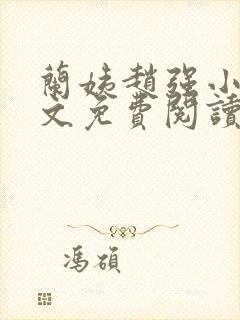 蘭姨趙強小
文免費閱讀
馮碩